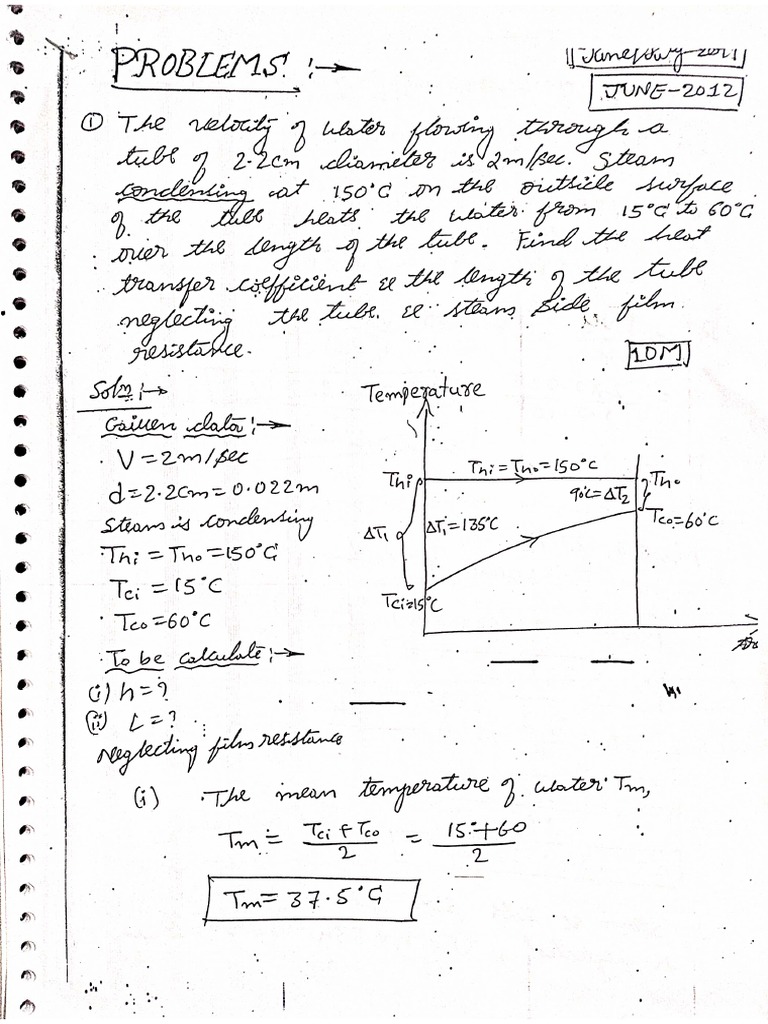 PROBLEMS :→
JUNE-2012
① The velocity of water flowing through a
tube of 2.2cm diameter is 2m/sec. Steam
condensing at 150°C on the outside surface
of the tube heats the water from 15°C to 60°C
over the length of the tube. Find the heat
transfer coefficient & the length of the tube
neglecting the tube & steam side film
resistance.
10M
Soln :→
Given data :→
V = 2m/sec
d = 2.2cm = 0.022m
Steam is condensing
Thi = Tho = 150°C
Tci = 15°C
Tco = 60°C
To be calculate :→
(i) h = ?
(ii) L = ?
Neglecting film resistance
Temperature
Thi = Tho = 150°C
Thi
Tho
90°C = ΔT2
Tco = 60°C
ΔT1
ΔT1 = 135°C
Tci = 15°C
(i) The mean temperature of water Tm,
Tm = Tci + Tco / 2 = 15 + 60 / 2
Tm = 37.5°C